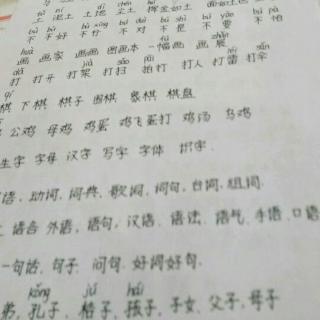 土 泥土 土地 尘土 挥金如土 面如土色
bù bù hǎo bù xíng bù duì bú shì bú yào bú pà
不 不好 不行 不对 不是 不要 不怕
huà
画 画家 画画 图画本 一幅画 画展
dǎ
打 打开 打架 打扫 拍打 打人 打雷 打伞
qí
棋 下棋 棋子 围棋 象棋 棋盘
公鸡 母鸡 鸡蛋 鸡飞蛋打 鸡汤 乌鸡
生字 字母 汉字 写字 字体 识字.
助词、词典、歌词、词句、台词、组词.
语言 外语、语句、汉语、语法、语气、手语、口语
一句话、句子、问句、好词好句.
kǒng hái
弟、孔子、格子、孩子、子女、父子、母子